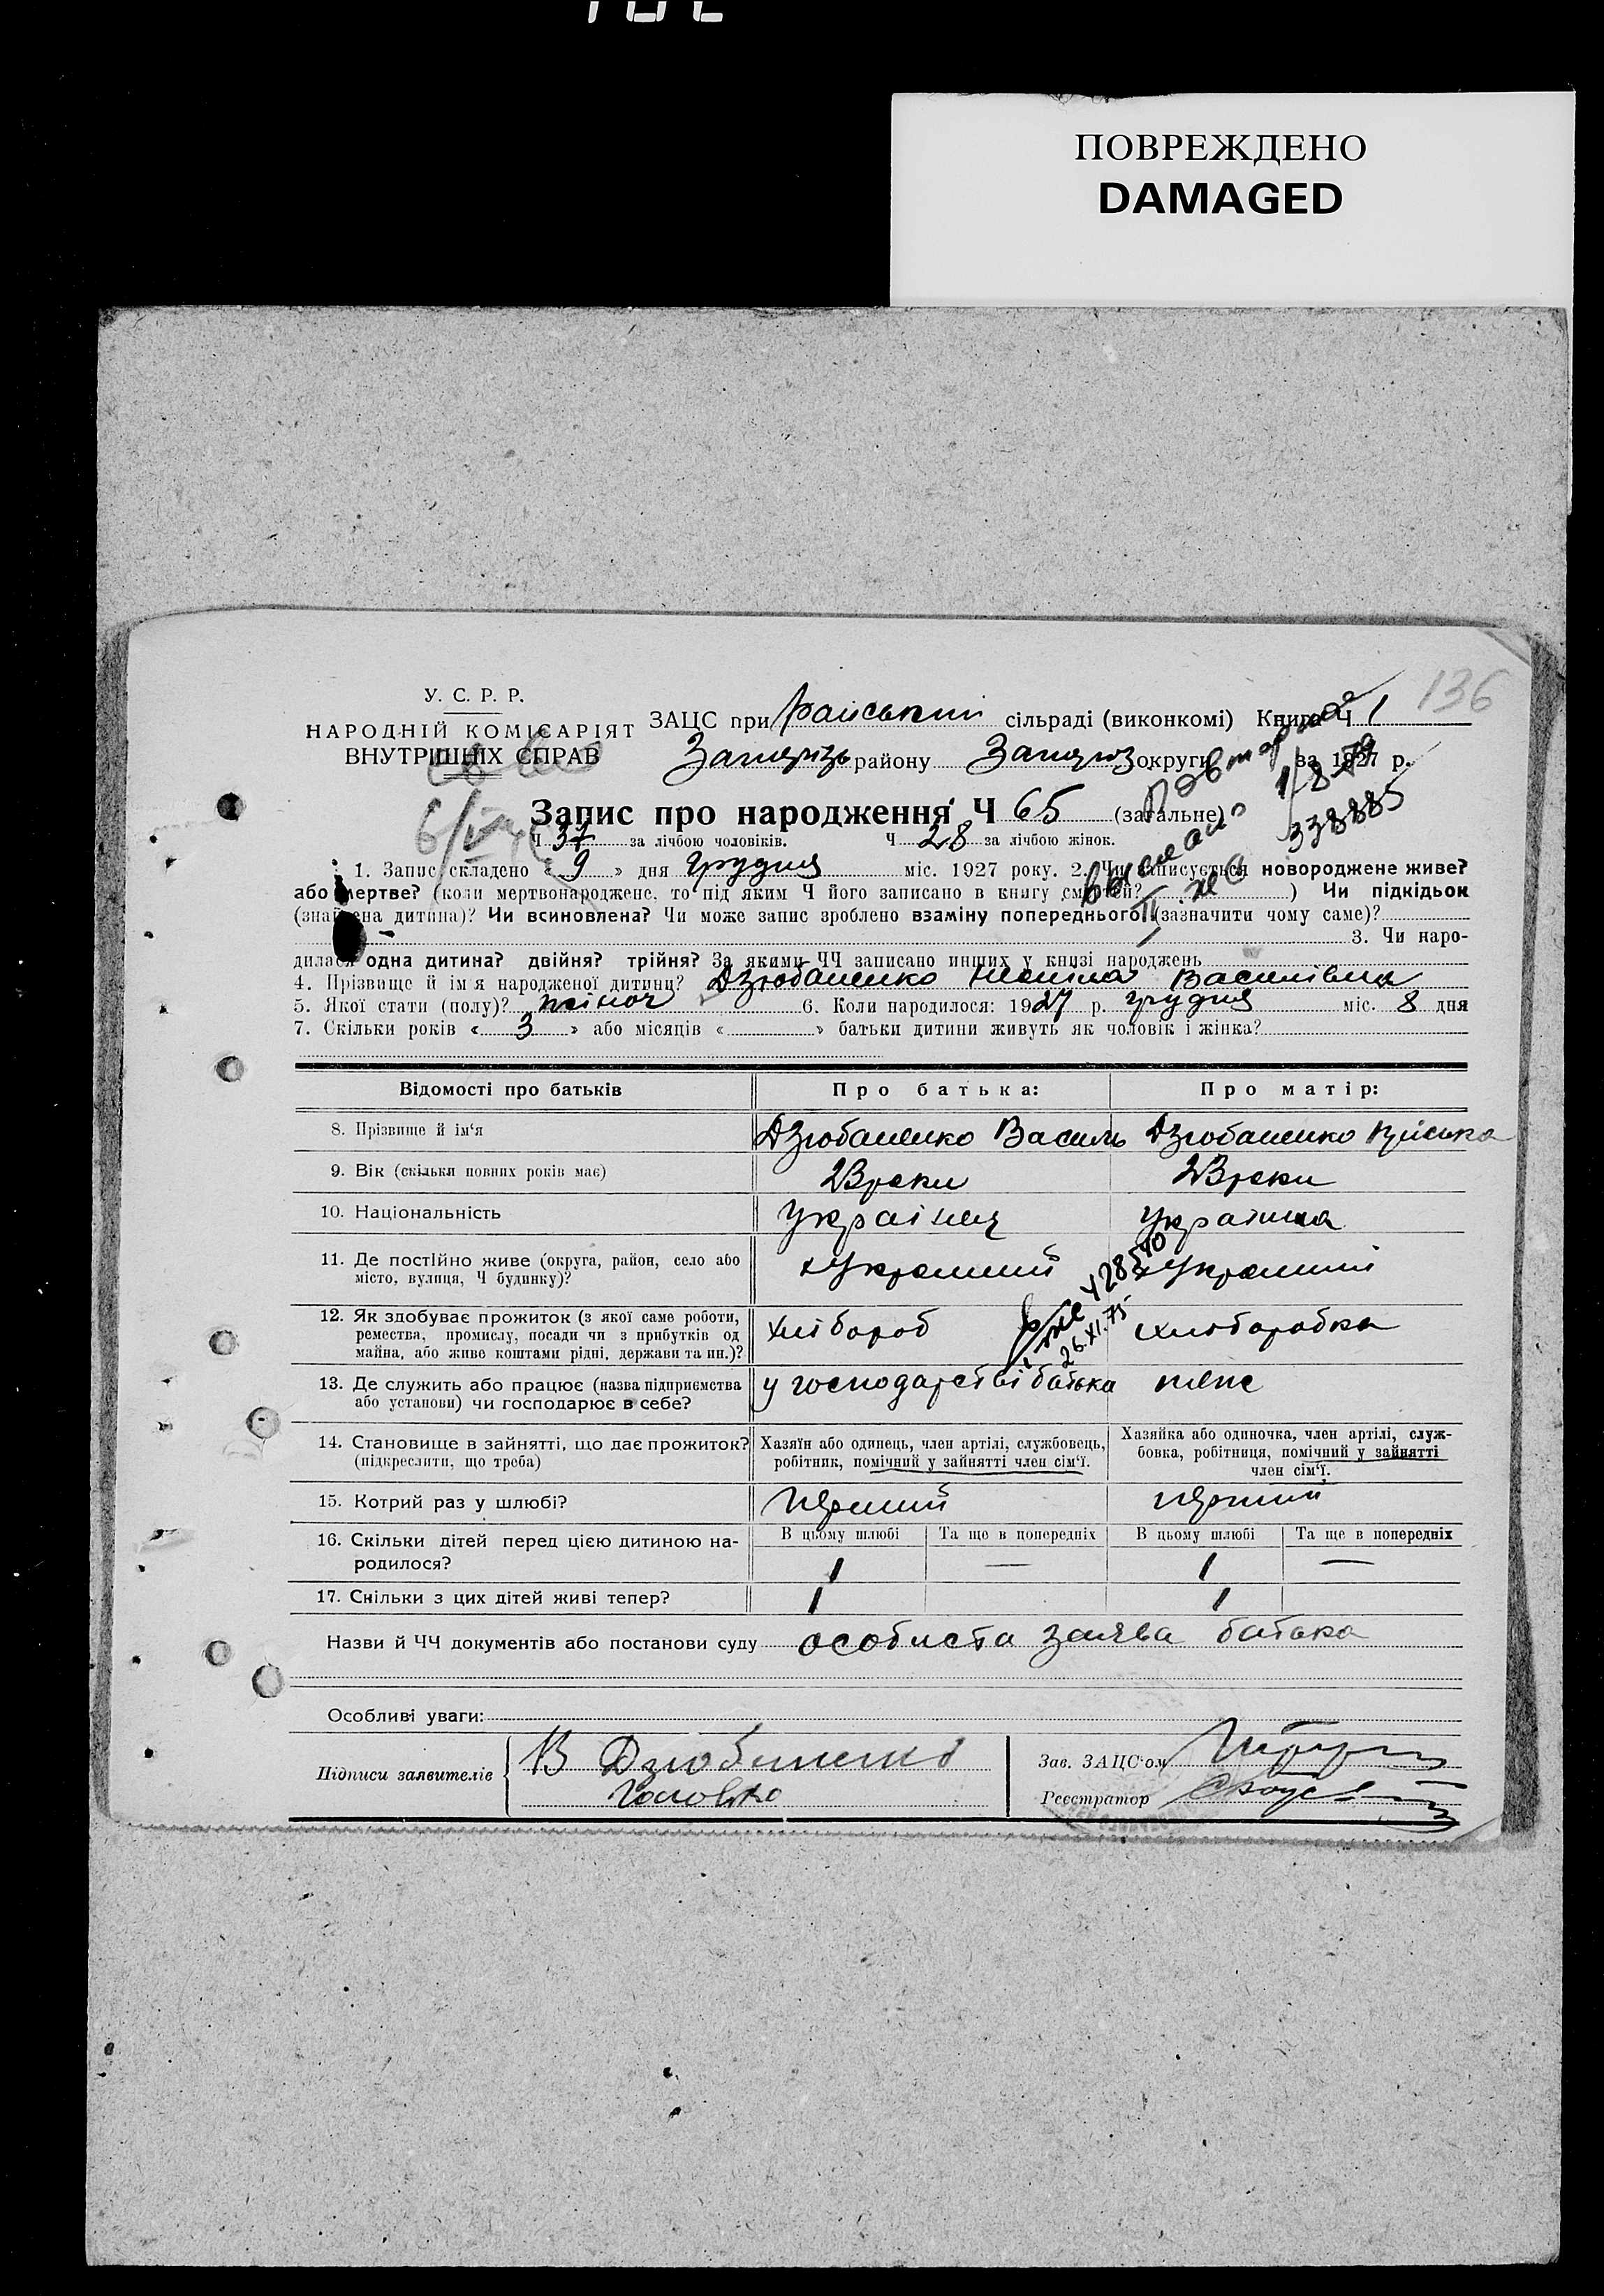 ПОВРЕЖДЕНО
DAMAGED
136
У. С. Р. Р.
НАРОДНІЙ КОМІСАРІЯТ
ВНУТРІШНІХ СПРАВ
ЗАЦС при Райський сільраді (виконкомі) Книга Ч 1
району округи за 1927 р.
338885
Запис про народження Ч 65 (загальне)
Ч 37 за лічбою чоловіків. Ч 28 за лічбою жінок.
1. Запис складено « 9 » дня грудня міс. 1927 року. 2. Чи записується новороджене живе?
або мертве? (коли мертвонароджене, то під яким Ч його записано в книгу смертей? ) Чи підкідьок
(знайдена дитина)? Чи всиновлена? Чи може запис зроблено взаміну попереднього (зазначити чому саме)?
3. Чи наро-
дилася одна дитина? двійня? трійня? За якими ЧЧ записано инших у книзі народжень
4. Прізвище й ім'я народженої дитини? Дзюбаненко Василівна
5. Якої статі (полу)? жіноч 6. Коли народилося: 1927 р. грудня міс. 8 дня
7. Скільки років « 3 » або місяців « » батьки дитини живуть як чоловік і жінка?
Відомості про батьків Про батька: Про матір:
8. Прізвище й ім'я Дзюбаненко Василь Дзюбаненко Пріська
9. Вік (скільки повних років має) 23 роки 23 роки
10. Національність Українец Украінка
11. Де постійно живе (округа, район, село або
місто, вулиця, Ч будинку)?
26.XI.75
12. Як здобуває прожиток (з якої саме роботи,
ремества, промислу, посади чи з прибутків од
майна, або живе коштами рідні, держави та ин.)?
хлібороб хліборобка
13. Де служить або працює (назва підприємства
або установи) чи господарює в себе?
у господарстві батька теж
14. Становище в зайнятті, що дає прожиток?
(підкреслити, що треба)
Хазяїн або одинець, член артілі, службовець,
робітник, помічний у зайнятті член сім'ї.
Хазяйка або одиночка, член артілі, служ-
бовка, робітниця, помічний у зайнятті
член сім'ї.
15. Котрий раз у шлюбі? перший перший
16. Скільки дітей перед цією дитиною на-
родилося?
В цьому шлюбі Та ще в попередніх В цьому шлюбі Та ще в попередніх
1 — 1 —
17. Скільки з цих дітей живі тепер? 1 1
Назви й ЧЧ документів або постанови суду особиста заява батька
Особливі уваги:
Підписи заявителів В Дзюбаненко
Зав. ЗАЦС'ом
Реєстратор